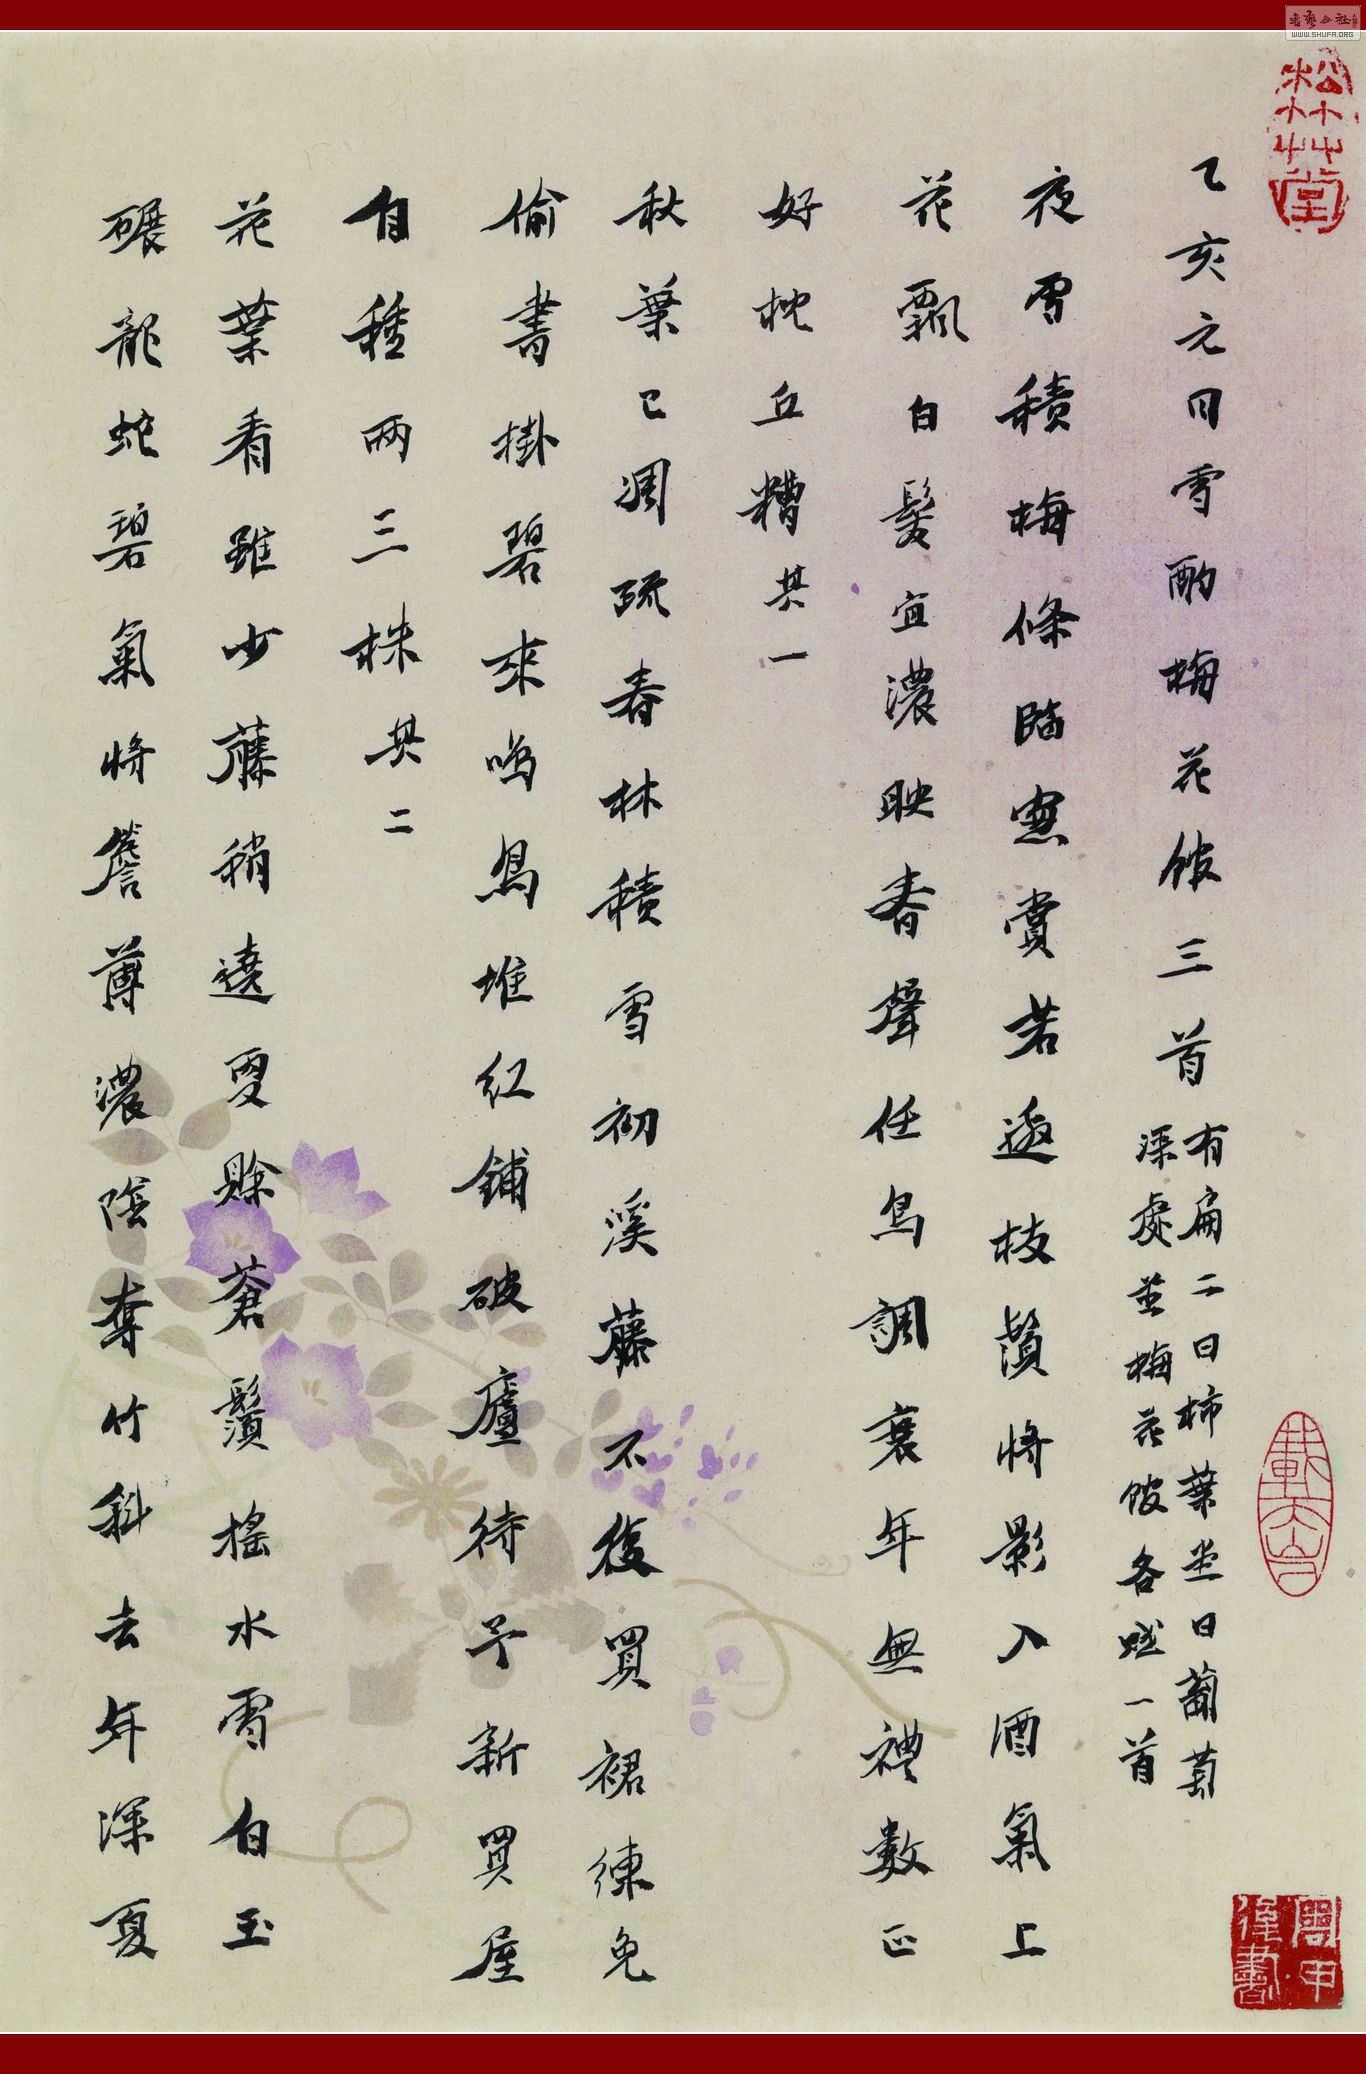 乙亥元日雪酌梅花館三首
有扁二曰柿葉坐曰葡萄
深處並梅花館各賦一首
夜雪積梅條臨窓賞若邀枝鬚將影入酒氣上
花飄白髮宜濃映春聲任鳥調衰年無禮數正
好枕丘糟其一
秋葉已凋疏春林積雪初溪藤不復買裙練免
偷書掛碧來鳴鳥堆紅鋪破廬待予新買屋
自種兩三株其二
花葉看雖少藤稍遶更賒蒼鬚搖水雪白玉
碾龍蛇碧氣將簷薄濃陰奪竹斜去年深夏
松竹草堂
WWW.SHUFA.ORG